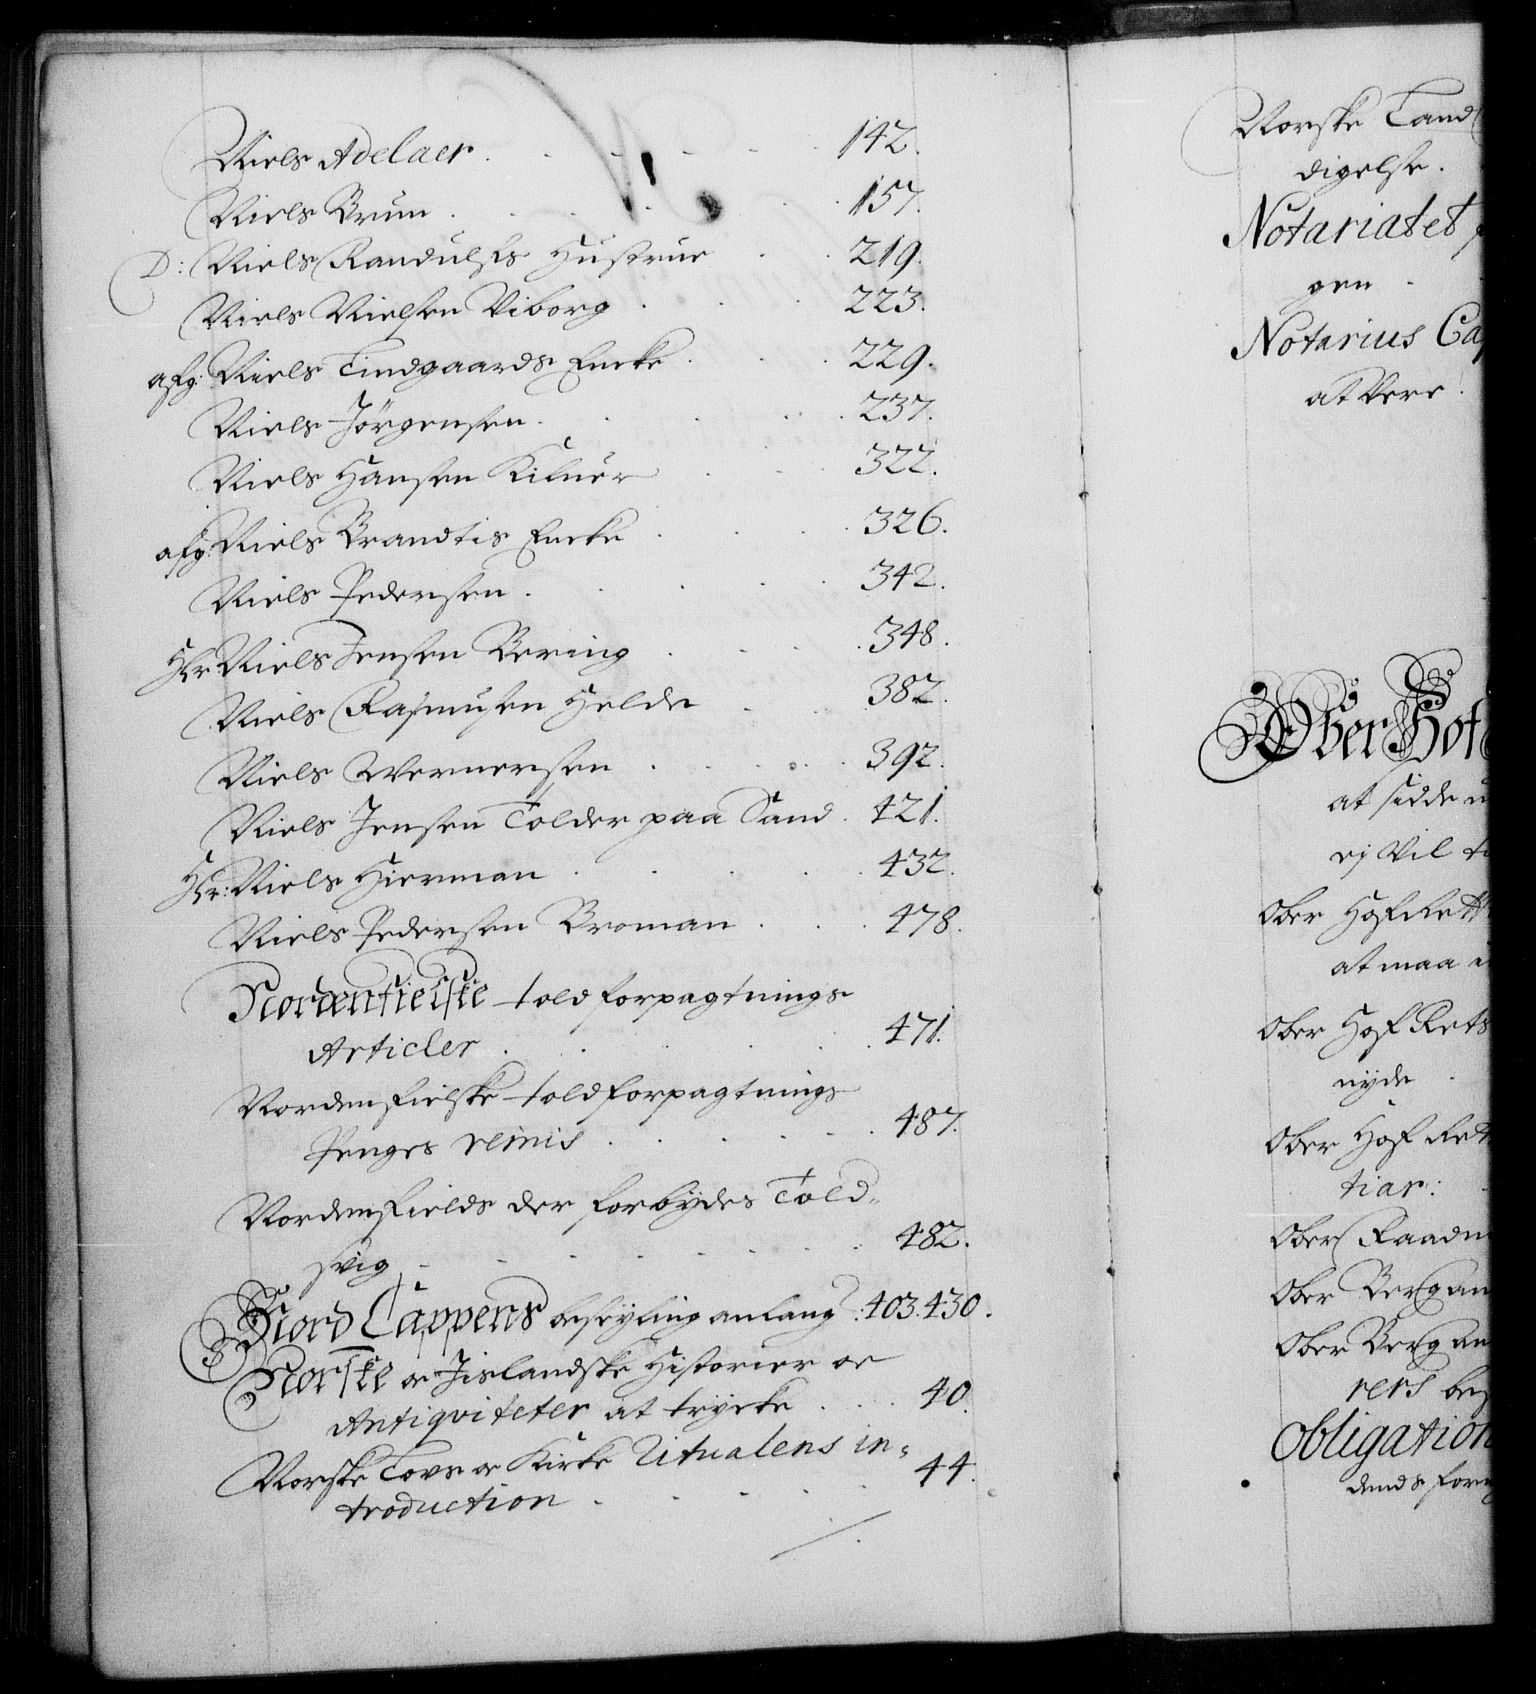 Niels Adelaer. 142.
Niels Brun. 157.
D: Niels Randulfs Hustrue 219.
Niels Nielsen Viborg 223.
afg: Niels Tindgaards Encke 229.
Niels Jörgensen. 237.
Niels Hansen 322.
afg: Niels Brandtis Encke 326.
Niels Pedersen. 342.
Hr Niels Jensen Bering 348.
Niels Rasmusen Helde 382.
Niels Wernersen 392.
Niels Jensen Tolder paa Sand. 421.
Hr: Niels Hierman 432.
Niels Pedersen Broman 478.
Nordenfielske toldforpagtnings
Articler 471.
Nordenfielske toldforpagtnings
Penges remis 487.
Nordenfields der forbydes Told-
svig 482.
Nord Cappens besejling anlang: 403.430.
Norske oc Jislandske Historier oc
Antiqviteter at trycke 40.
Norske Lovs oc Kirke Ritualens in-
troduction 44.
Norske Land
digelse.
Notariatet
gen
Notarius Cap
at Vere
Ober Hof
at sidde
ej Vil
Ober HofRett
at maa
Ober Hof Rets
nyde
Ober Hof Rett
tiar:
Ober Raadm
Ober Bergam
Ober Bergam
rers bes
Obligation